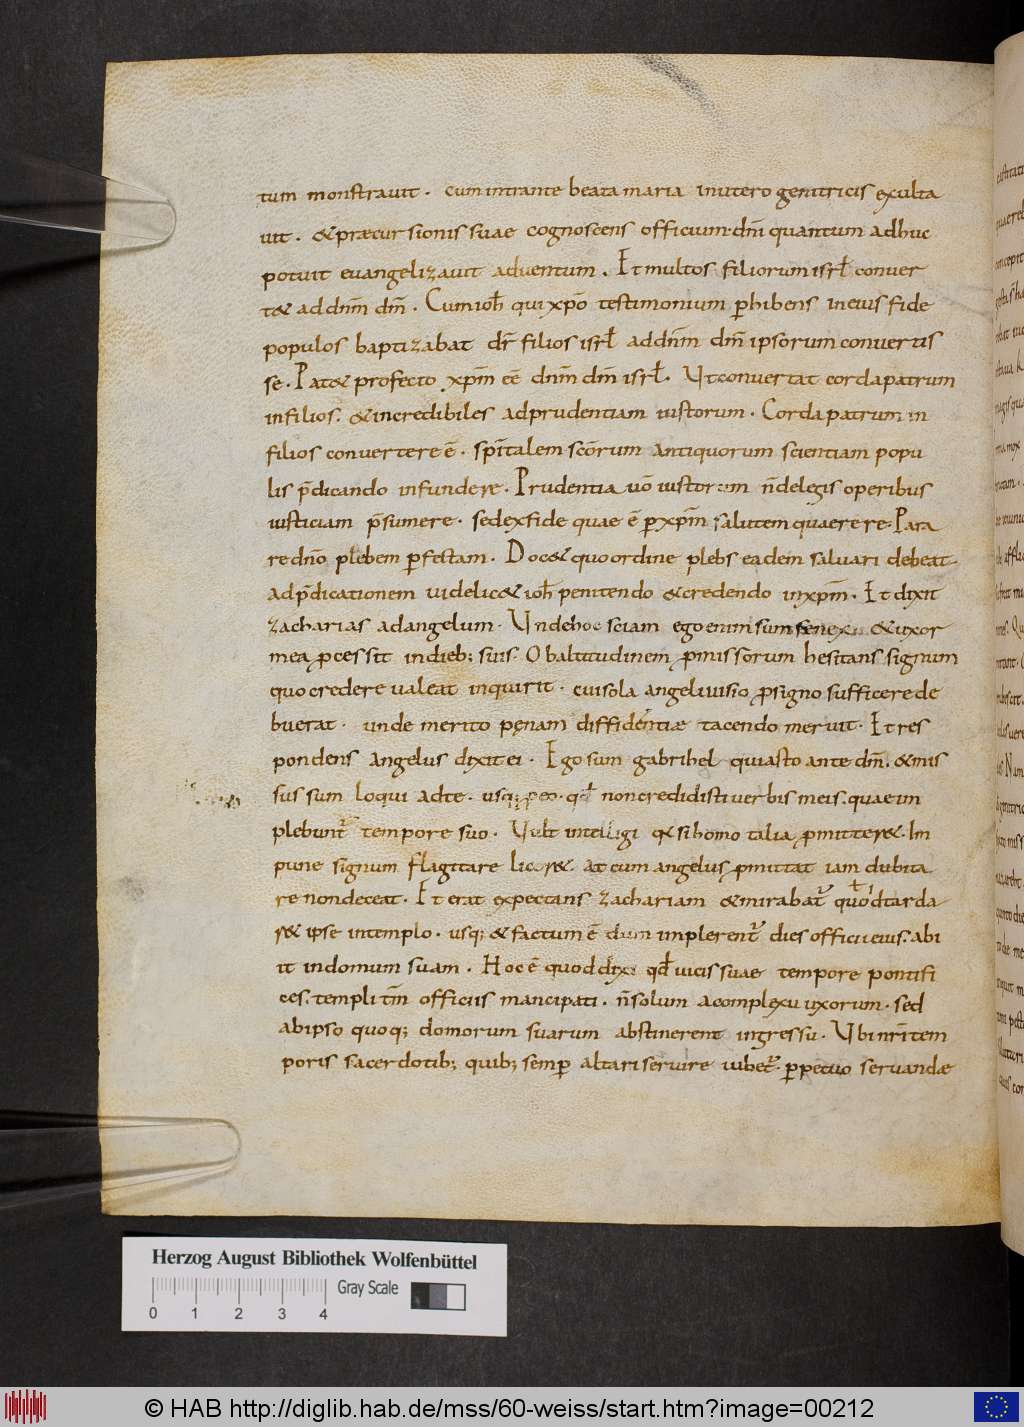 tum monstrauit. cum intrante beata maria inutero genitricis exulta
uit. &præcursionis suae cognoscens officium. dm̄ quantum adhuc
potuit euangelizauit aduentum. Et multos filiorum isrl̄ conuer
t& addnm̄ dm̄. Cum ioh̄ qui xp̄o testimonium p̄hibens ineius fide
populos baptizabat dr̄ filios isrl̄ addnm̄ dm̄ ipsorum conuertis
se. Pat& profecto xpm̄ eē dnm̄ dm̄ isrl̄. Ut conuertat corda patrum
infilios. &incredibiles adprudentiam iustorum. Corda patrum in
filios conuertere ē. spītalem scōrum antiquorum scientiam popu
lis p̄dicando infundere. Prudentia uō iustorum n̄ delegis operibus
iusticiam p̄sumere. sed exfide quae ē p̄ xpm̄ salutem quaerere. Para
re dnō plebem p̄fectam. Doc& quo ordine plebs eadem saluari debeat.
adp̄dicationem uidelic& ioh̄ penitendo &credendo inxpm̄. Et dixit
zacharias adangelum. Unde hoc sciam ego enim sum senex &uxor
mea p̄cessit indieb; suis. Ob altitudinem p̄missorum hesitans signum
quo credere ualeat inquirit. cui sola angeli uisio p̄ signo sufficere de
buerat. unde merito pęnam diffidentiæ tacendo meruit. Et res
pondens angelus dixit ei. Ego sum gabrihel qui asto ante dm̄. &mis
sus sum loqui adte. usq; p eo. qd̄ non credidisti uerbis meis. quae im
plebunt̄ tempore suo. Uult intelligi q& si homo talia p̄mitter&. Im
pune signum flagitare licer&. at cum angelus p̄mittat iam dubita
re nondeceat. Et erat expectans zachariam &mirabat̄ quod tarda
r& ipse intemplo. usq; & factum ē dum implerent̄ dies officii eius. abi
it indomum suam. Hoc ē quod dixi qd̄ uicis suae tempore pontifi
ces. templi tm̄ officiis mancipati. n̄ solum acomplexu uxorum. sed
abipso quoq; domorum suarum abstinerent ingressu. Ubi nr̄i tem
poris sacerdotib; quib; semp̄ altari seruire iubet̄. p̄petuo seruandæ
Herzog August Bibliothek Wolfenbüttel
Gray Scale
0 1 2 3 4
© HAB http://diglib.hab.de/mss/60-weiss/start.htm?image=00212